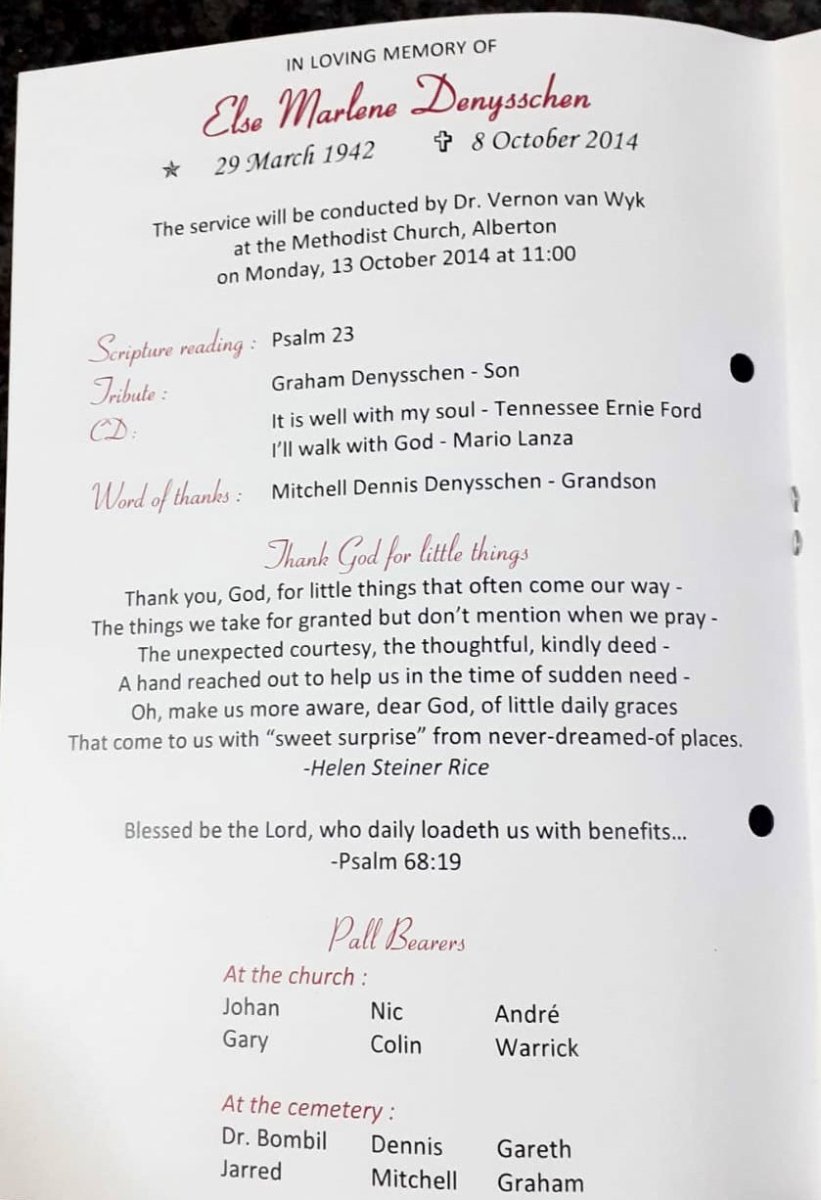 IN LOVING MEMORY OF
Else Marlene Denysschen
✯ 29 March 1942 ✞ 8 October 2014
The service will be conducted by Dr. Vernon van Wyk
at the Methodist Church, Alberton
on Monday, 13 October 2014 at 11:00
Scripture reading : Psalm 23
Tribute : Graham Denysschen - Son
CD: It is well with my soul - Tennessee Ernie Ford
I'll walk with God - Mario Lanza
Word of thanks : Mitchell Dennis Denysschen - Grandson
Thank God for little things
Thank you, God, for little things that often come our way -
The things we take for granted but don't mention when we pray -
The unexpected courtesy, the thoughtful, kindly deed -
A hand reached out to help us in the time of sudden need -
Oh, make us more aware, dear God, of little daily graces
That come to us with "sweet surprise" from never-dreamed-of places.
-Helen Steiner Rice
Blessed be the Lord, who daily loadeth us with benefits...
-Psalm 68:19
Pall Bearers
At the church :
Johan Nic André
Gary Colin Warrick
At the cemetery :
Dr. Bombil Dennis Gareth
Jarred Mitchell Graham